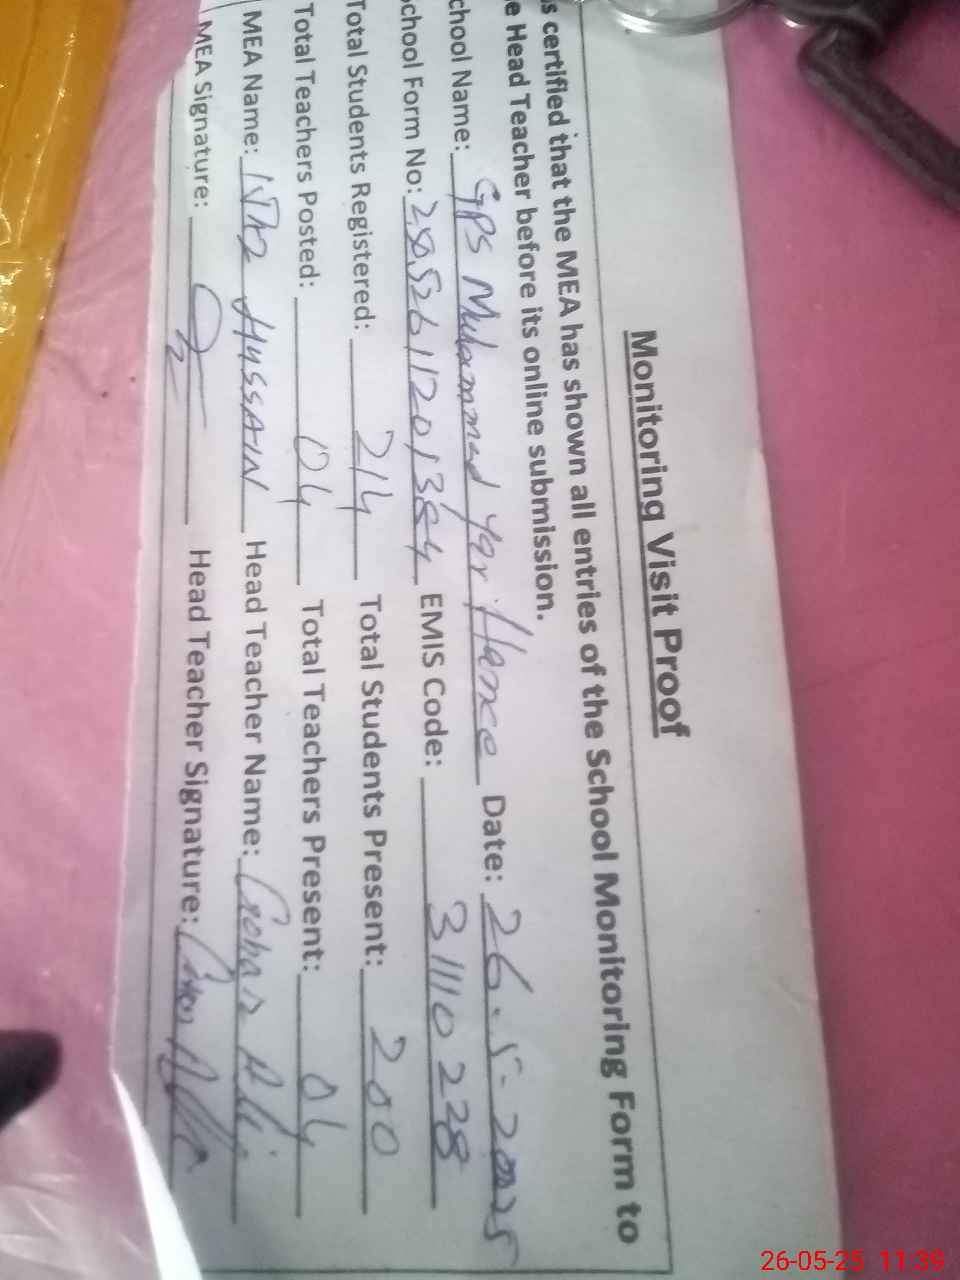 Monitoring Visit Proof
s certified that the MEA has shown all entries of the School Monitoring Form to
e Head Teacher before its online submission.
chool Name: GPS Muhammad Yar Hance Date: 26.5.2025
chool Form No: Emis Code: 31110228
Total Students Registered: 214 Total Students Present: 200
Total Teachers Posted: 04 Total Teachers Present: 04
MEA Name: HUSSAIN Head Teacher Name: Gohar Ali
MEA Signature: Head Teacher Signature:
26-05-25 11:39